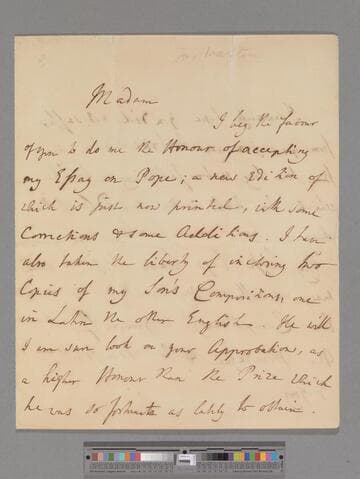 Jos: Warton
Madam
I beg the favour
of you to do me the Honour of accepting
my Essay on Pope; a new Edition of
which is just now printed, with some
Corrections & some Additions. I have
also taken the liberty of inclosing two
Copies of my Son's Compositions, one
in Latin the other English. He will
I am sure look on your Approbation, as
a higher Honour than the Prize which
he was so fortunate as lately to obtain.